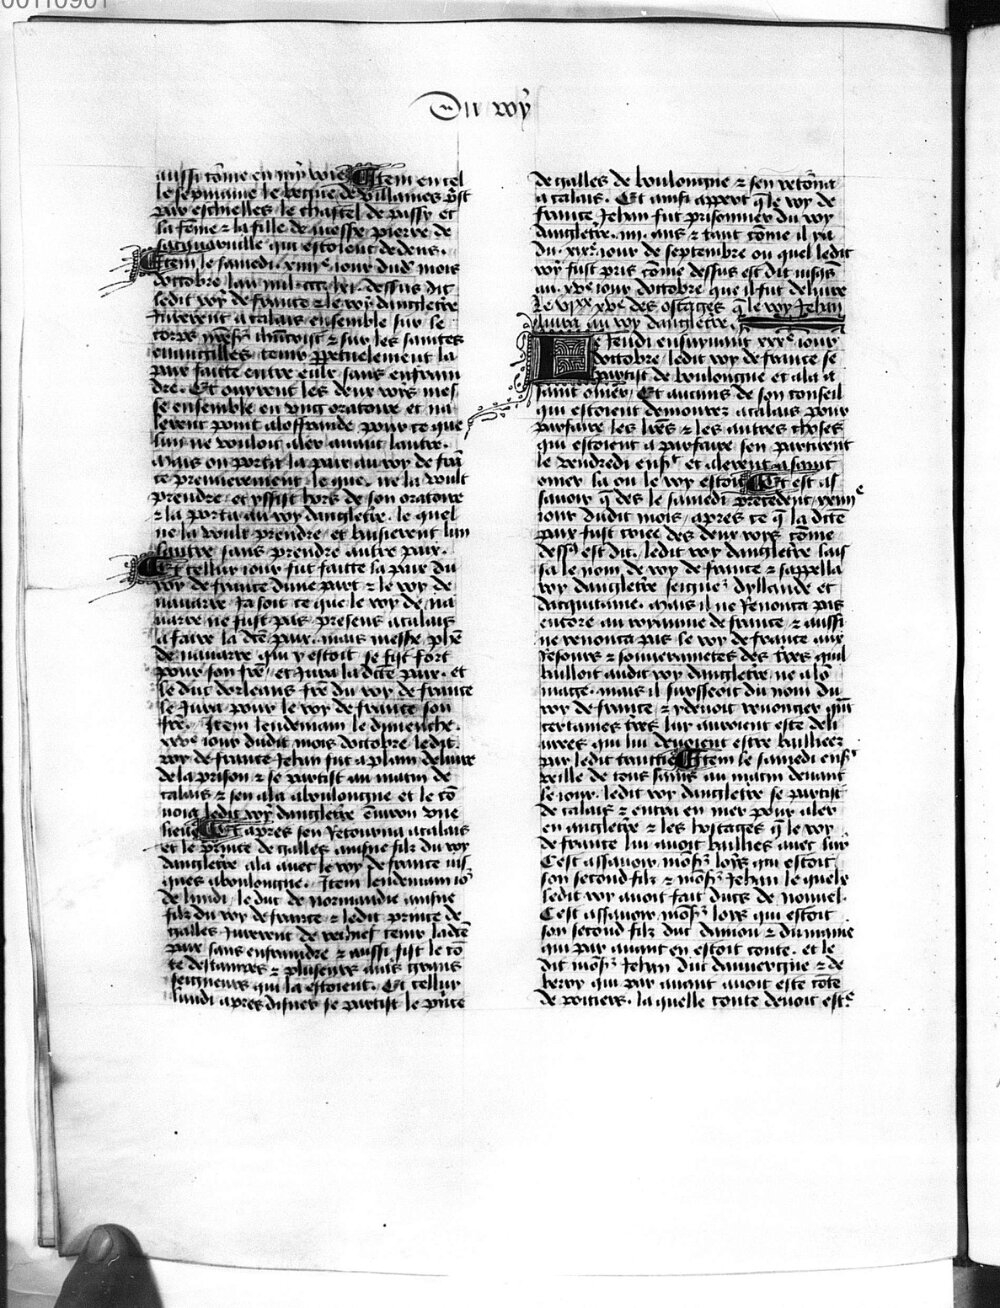 00110901
Du roy
aussi cõme en my voie Item en cel
le sepmaine le begue de villaines p̃st
par eschielles le chastel de passy et
la fẽme ⁊ la fille de messe pierre de
sacquainuille qui estoient dedens.
Item le samedi . xxiiii.e iour dud' mois
doctobre lan mil . ccc . lx . dessus dit
ledit roy de france ⁊ le roy dangleťre
Jurerent a calais ensemble sur le
corps ihucrist ⁊ sur les saintes
euuangilles tenir ppetuelement la
paix faitte entre eulx sans enfrain
dre . Et ouyrent les deux roys mes
se ensemble en vng oratoire et na
lerent point aloffrande pour ce que
lun ne vouloit aler auant lautre .
Mais on porta la paix au roy de frã
ce premierement le quel ne la voult
prendre . et yssist hors de son oratoire
⁊ la porta au roy dangleťre . le quel
ne la voult prendre / et baisierent lun
lautre sans prendre autre paix .
Et cellui iour fut faitte la paix du
roy de france dune part ⁊ le roy de
nauarre . Ja soit ce que le roy de na
uarre ne fust pas presens a calais
a faire la dcẽ paix . mais messe phẽ
de nauarre qui y estoit se fist fort
pour son frẽ . et Jura la dicte paix . et
le duc dorleans frẽ du roy de france
le Jura pour le roy de france son
frẽ . Item lendemain le dimenche
xxve iour dudit mois doctobre ledit
roy de france Jehan fut a plain deliure
de la prison ⁊ se partist au matin de
calais ⁊ sen ala aboulongne et le cõ
uoia ledit roy dangleťre enuiron vne
lieue Et apres sen Retourna a calais
et le prince de galles ainsne filz du roy
dangleťre ala auec le roy de france ius
ques aboulongne . Item lendemain io'
de lundi . le duc de normandie ainsne
filz du roy de france ⁊ ledit prince de
galles Jurerent de rechief tenir ladcẽ
paix sans enfraindre ⁊ aussi fist le cõ
te destampes ⁊ plusieurs aut's grans
seigneurs qui la estoient . Et cellui
lundi apres disner se partist le p'nce
de galles de boulongne ⁊ sen retorna
a calais . Et ainsi appert q̃ le roy de
france Jehan fut prisonnier du roy
dangleťre . iiii . ans ⁊ tant cõme il y a
du . xixe . iour de septembre ou quel ledit
roy fust pris cõme dessus est dit iusqs
au . xve iour doctobre que il fut deliure
des ostages q̃ le roy Jehan
liura au roy dangleťre .
Le Jeudi ensuyuant xxixe iour
doctobre ledit roy de france se
partist de boulongne et ala a
saint omer / Et aucuns de son conseil
qui estoient demourez acalais pour
parfaire les lrẽs ⁊ les autres choses
qui estoient a parfaire sen partirent
le vendredi ens' et alerent asaint
omer la ou le roy estoit Et est as
sauoir q̃ des le samedi precedent . xxiiiie
iour dudit mois . apres ce q̃ la dcẽ
paix fust criee des deux roys cõme
dess' est dit . ledit roy dangleťre lais
sa le nom de roy de france ⁊ sappella
roy dangleťre seigne' dyllande et
dacquitaine . Mais il ne Renonca pas
encore au royaume de france . ⁊ aussi
ne renonca pas le roy de france aux
Ressors ⁊ souuerainetes des ťres quil
bailloit audit roy dangleťre ne a lõ
mage . mais il sursseoit du nom du
roy de france . ⁊ y deuoit renoncier qñt
certaines ťres lui auroient este deli
urees qui lui deuoient estre baillees
par ledit traittie Item le samedi ens'
veille de tous sains au matin deuant
le iour . ledit roy dangleťre se partist
de calais ⁊ entra en mer pour aler
en angleťre ⁊ les hostages q̃ le roy
de france lui auoit bailliez auec lui
Cest assauoir mõs' loys qui estoit
son second filz ⁊ mõs' Jehan le quelx
ledit roy auoit fait ducs de nouuel .
Cest assauoir mõs' loys qui estoit
son second filz duc daniou ⁊ du maine
qui par auant en estoit conte . et le
dit mõs' Jehan duc dauuergne ⁊ de
berry qui par auant auoit este cõte
de poitiers . la quelle conte deuoit est'e